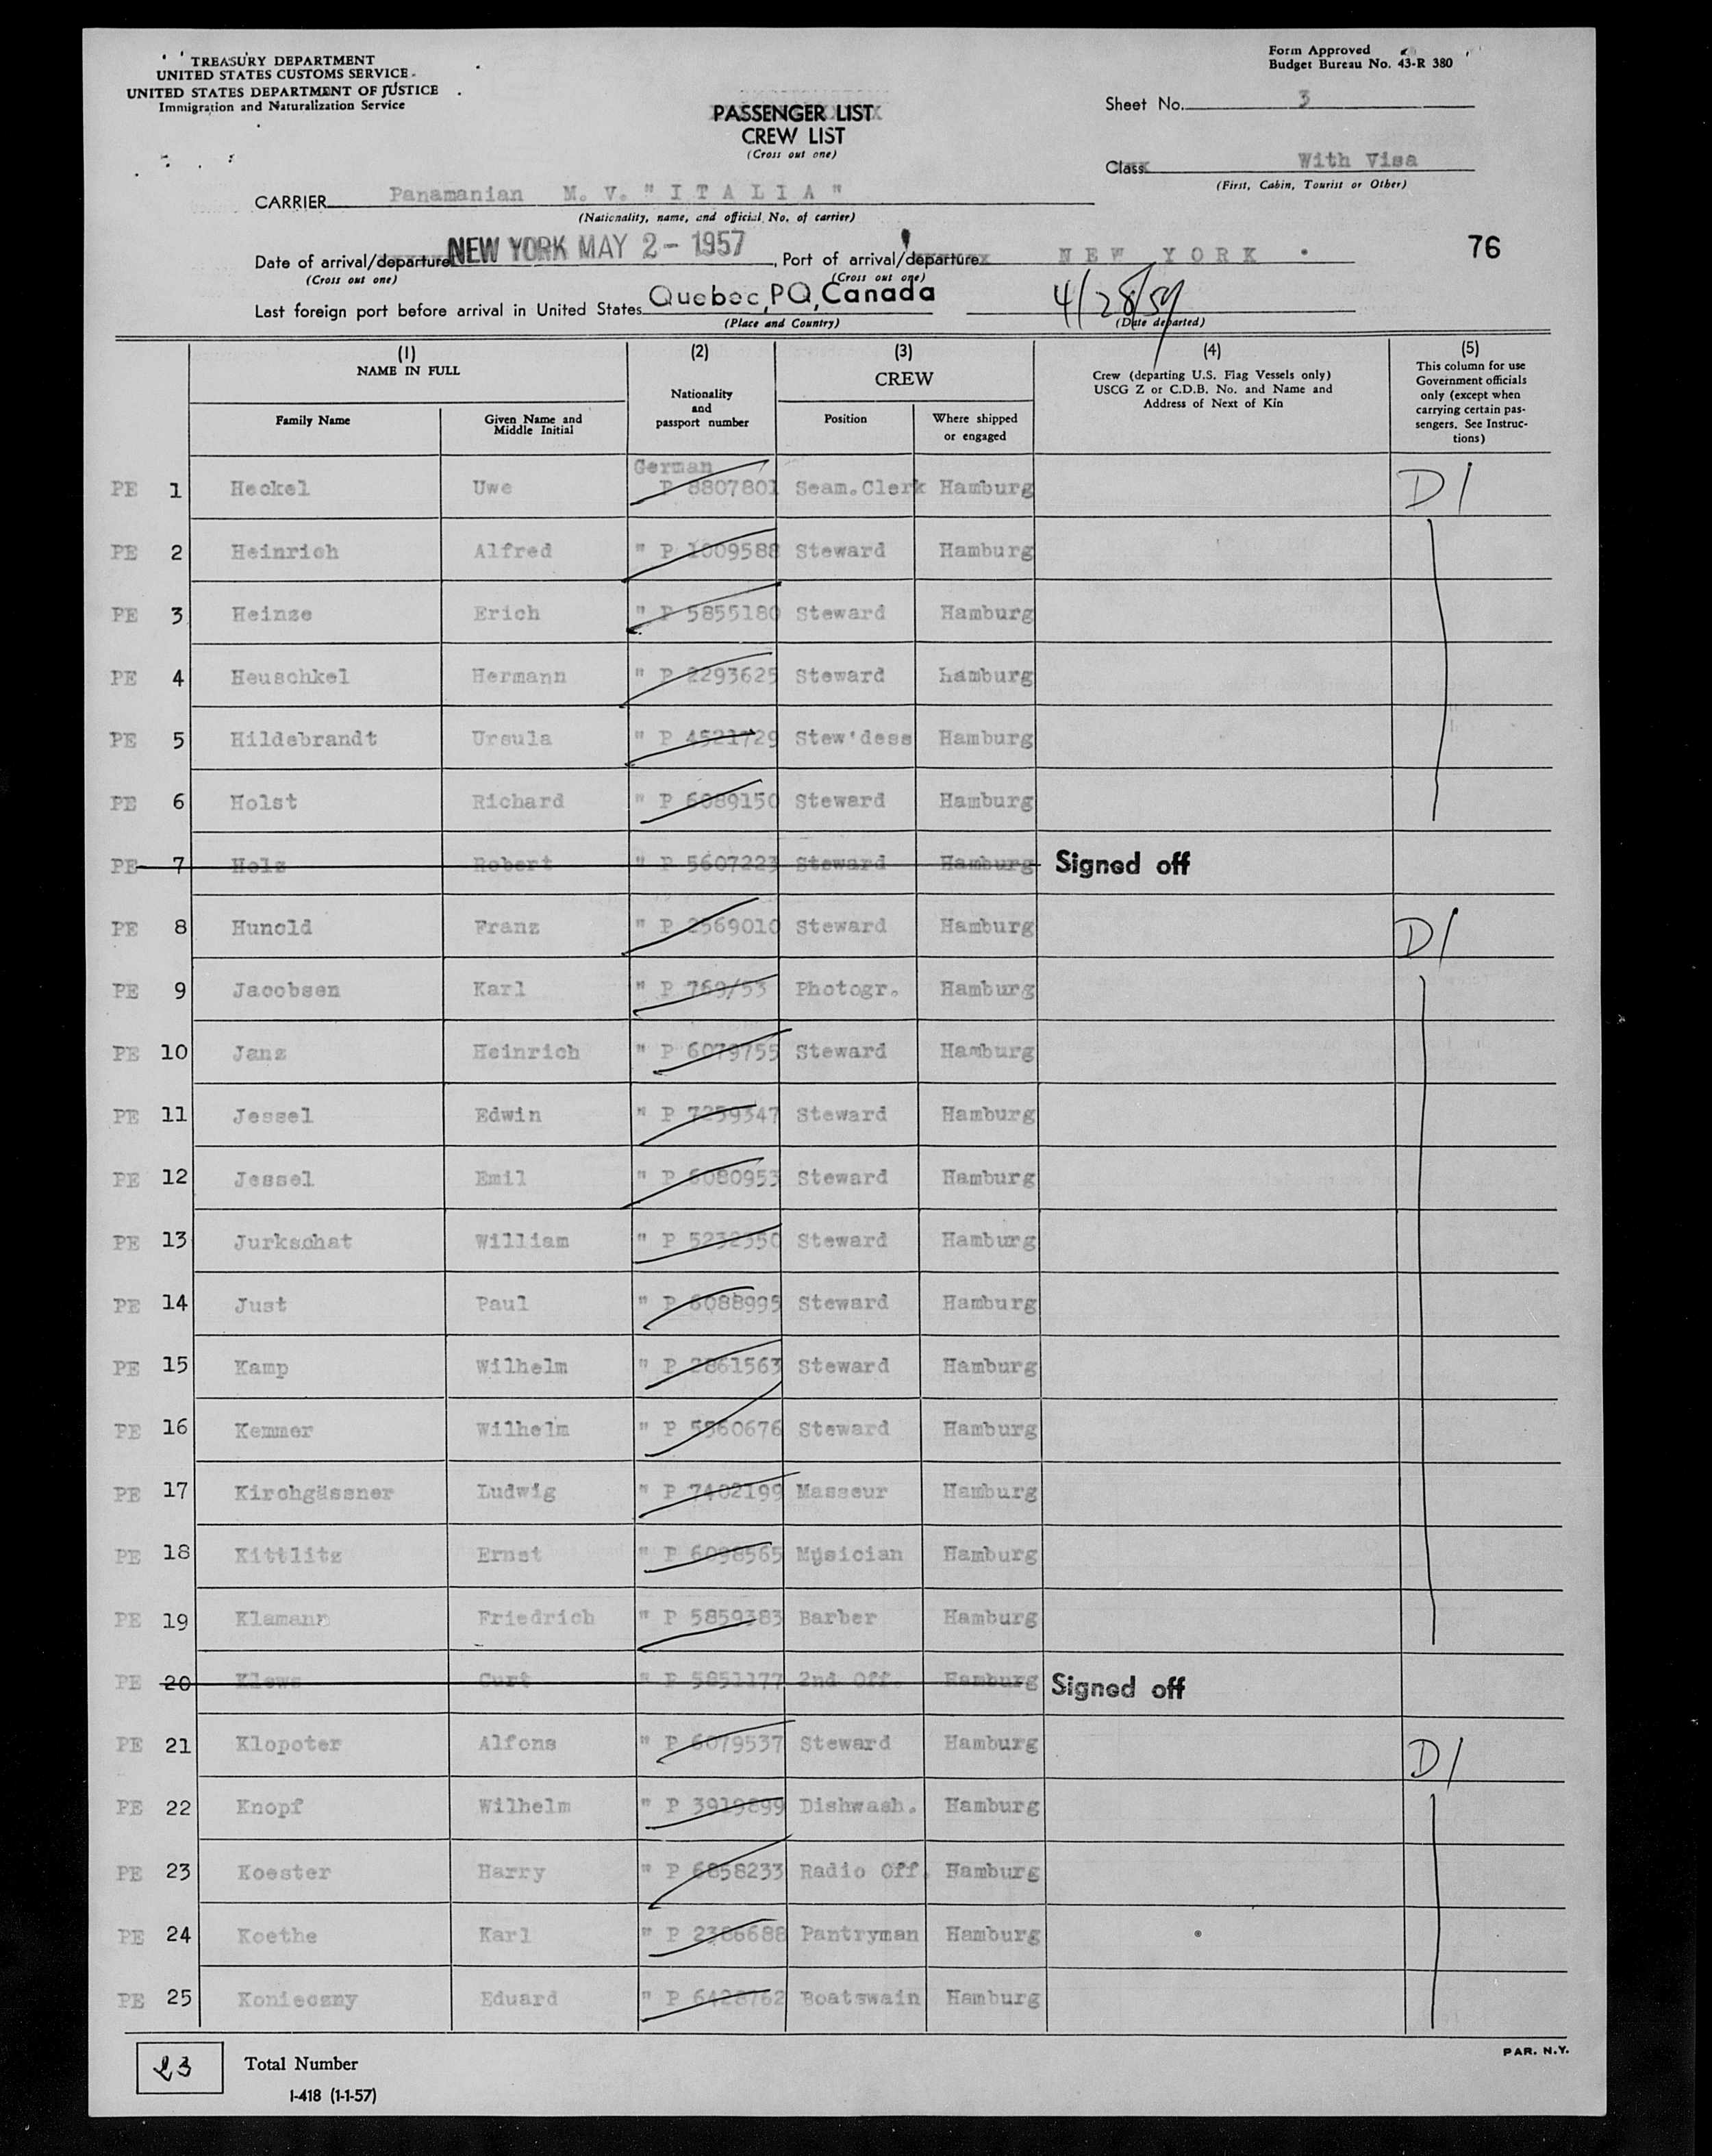 TREASURY DEPARTMENT
UNITED STATES CUSTOMS SERVICE
UNITED STATES DEPARTMENT OF JUSTICE
Immigration and Naturalization Service
Form Approved
Budget Bureau No. 43-R 380
PASSENGER LIST
CREW LIST
(Cross out one)
Sheet No. 3
Class With Visa
(First, Cabin, Tourist or Other)
CARRIER Panamanian M. V. "ITALIA"
(Nationality, name, and official No. of carrier)
Date of arrival/departure NEW YORK MAY 2 - 1957, Port of arrival/departure NEW YORK 76
(Cross out one) (Cross out one)
Last foreign port before arrival in United States Quebec, PQ, Canada 4/28/57
(Place and Country) (Date departed)
(1) NAME IN FULL
(2) Nationality and passport number
(3) CREW
(4) Crew (departing U.S. Flag Vessels only) USCG Z or C.D.B. No. and Name and Address of Next of Kin
(5) This column for use Government officials only (except when carrying certain passengers. See Instructions)
Family Name Given Name and Middle Initial Position Where shipped or engaged
German
PE 1 Heckel Uwe P 8807801 Seam.Clerk Hamburg D1
PE 2 Heinrich Alfred " P 1009588 Steward Hamburg
PE 3 Heinze Erich " P 5855180 Steward Hamburg
PE 4 Heuschkel Hermann " P 2293625 Steward Hamburg
PE 5 Hildebrandt Ursula " P 4521729 Stew'dess Hamburg
PE 6 Holst Richard " P 6089150 Steward Hamburg
PE 7 Holz Robert " P 5607223 Steward Hamburg Signed off
PE 8 Hunold Franz " P 2569010 Steward Hamburg D1
PE 9 Jacobsen Karl " P 769/53 Photogr. Hamburg
PE 10 Janz Heinrich " P 6079755 Steward Hamburg
PE 11 Jessel Edwin " P 7259347 Steward Hamburg
PE 12 Jessel Emil " P 6080953 Steward Hamburg
PE 13 Jurkschat William " P 5232350 Steward Hamburg
PE 14 Just Paul " P 6088995 Steward Hamburg
PE 15 Kamp Wilhelm " P 2861563 Steward Hamburg
PE 16 Kemmer Wilhelm " P 5860676 Steward Hamburg
PE 17 Kirchgässner Ludwig " P 7402199 Masseur Hamburg
PE 18 Kittlitz Ernst " P 6098565 Musician Hamburg
PE 19 Klamann Friedrich " P 5859383 Barber Hamburg
PE 20 Klews Curt " P 5851177 2nd Off. Hamburg Signed off
PE 21 Klopoter Alfons " P 6079537 Steward Hamburg D1
PE 22 Knopf Wilhelm " P 3919899 Dishwash. Hamburg
PE 23 Koester Harry " P 6858233 Radio Off. Hamburg
PE 24 Koethe Karl " P 2386688 Pantryman Hamburg
PE 25 Konieczny Eduard " P 6428762 Boatswain Hamburg
23 Total Number
PAR. N.Y.
I-418 (1-1-57)